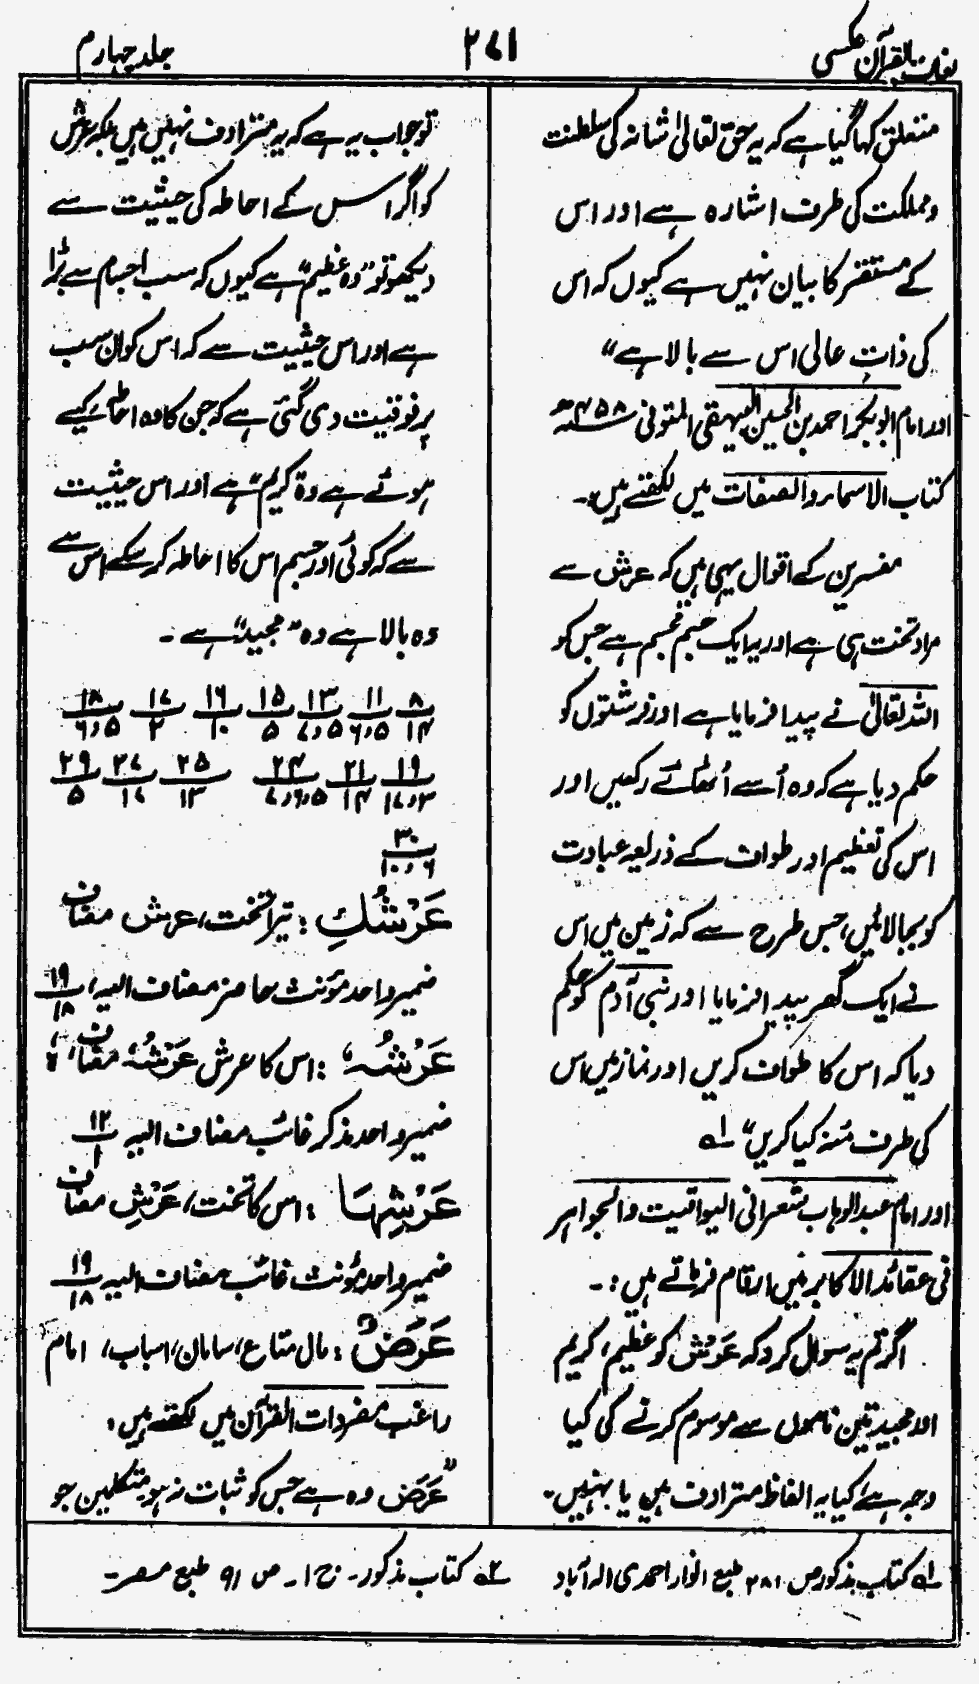 لغات القرآن عکسی
۲۷۱
جلد چہارم
متعلق کہا گیا ہے کہ یہ حق تعالیٰ شانہ کی سلطنت
و مملکت کی طرف اشارہ ہے اور اس
کے مستقر کا بیان نہیں ہے کیوں کہ اس
کی ذات عالی اس سے بالا ہے“
اور امام ابوبکر احمد بن الحسین البیہقی المتوفی ۴۵۸ھ
کتاب الاسماء والصفات میں لکھتے ہیں۔
مفسرین کے اقوال یہی ہیں کہ عرش سے
مراد تخت ہی ہے اور یہ ایک جسم مجسم ہے جس کو
اللہ تعالیٰ نے پیدا فرمایا ہے اور فرشتوں کو
حکم دیا ہے کہ وہ اُسے اُٹھائے رکھیں اور
اس کی تعظیم اور طواف کے ذریعہ عبادت
کو بجا لائیں، جس طرح سے کہ زمین میں اس
نے ایک گھر پیدا فرمایا اور نبی آدم کو حکم
دیا کہ اس کا طواف کریں اور نماز میں اس
کی طرف منہ کیا کریں“ لہ
اور امام عبدالوہاب شعرانی الیواقیت والجواہر
فی عقائد الاکابر میں ارقام فرماتے ہیں:۔
اگر تم یہ سوال کرو کہ عَرْش کو عظیم، کریم
اور مجید تین ناموں سے موسوم کرنے کی کیا
وجہ ہے؟ کیا یہ الفاظ مترادف ہیں یا نہیں۔
تو جواب یہ ہے کہ یہ مترادف نہیں ہیں بلکہ عرش
کو اگر اس کے احاطہ کی حیثیت سے
دیکھو تو ”وہ عظیم“ ہے کیوں کہ سب اجسام سے بڑا
ہے اور اس حیثیت سے کہ اس کو ان سب
پر فوقیت دی گئی ہے کہ جن کا وہ احاطہ کیے
ہوئے ہے وہ ”کریم“ ہے اور اس حیثیت
سے کہ کوئی اور جسم اس کا احاطہ کر سکے اس سے
وہ بالا ہے وہ ”مجید“ ہے۔
۸/۱۴ ۱۱/۶،۵ ۱۳/۷،۵ ۱۵/۵ ۱۶/۱۰ ۱۷/۲ ۱۸/۶،۵
۱۹/۱۷،۳ ۲۱/۱۴ ۲۴/۷،۶،۵ ۲۵/۱۳ ۲۷/۱۷ ۲۹/۵
۳۰/۱۰،۶
عَرْشُكِ : تیرا تخت، عرش مضاف
ضمیر واحد مؤنث حاضر مضاف الیہ، ۱۹/۱۸
عَرْشُہٗ : اس کا عرش عَرْشُہٗ مضاف، ہٗ
ضمیر واحد مذکر غائب مضاف الیہ ۱۲/۱
عَرْشِہَا : اس کا تخت، عَرْشِ مضاف
ضمیر واحد مؤنث غائب مضاف الیہ ۱۹/۱۸
عَرَضٌ : مال متاع، سامان، اسباب، امام
راغب مفردات القرآن میں لکھتے ہیں:
”عَرَض وہ ہے جس کو ثبات نہ ہو، متکلمین جو
لہ کتاب مذکور ص ۲۸۱ طبع انوار احمدی الہ آباد
۲ہ کتاب مذکور۔ ج ۱۔ ص ۹۱ طبع مصر۔